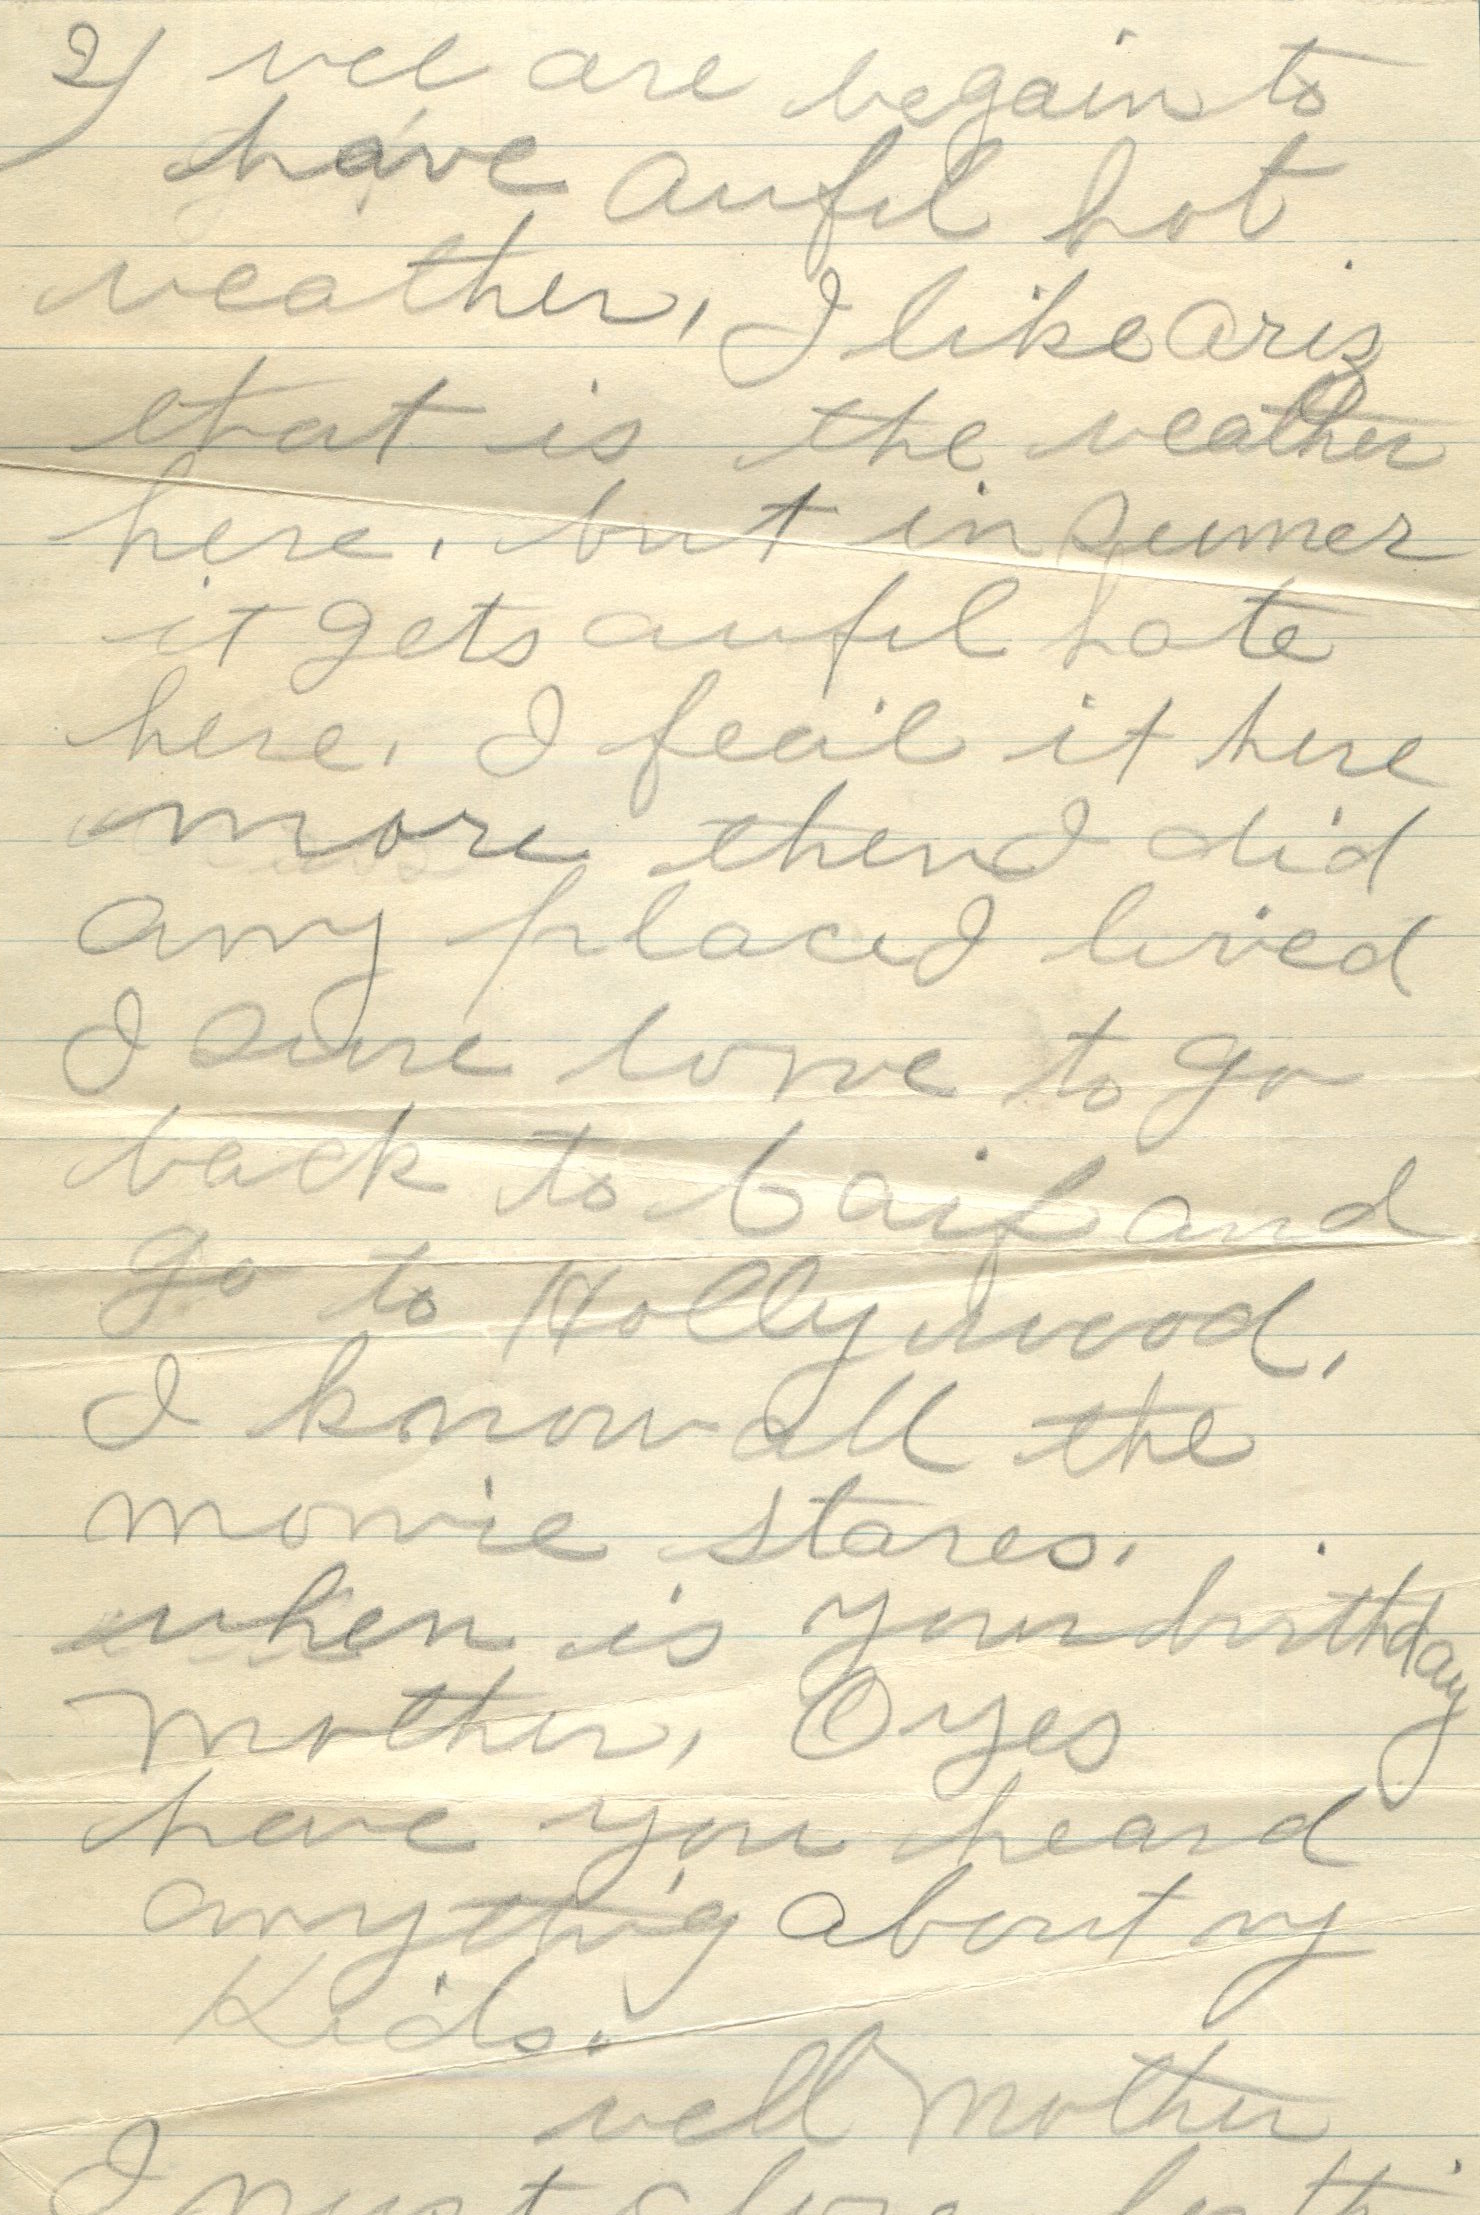 2/ wee are begain to
have aufil hot
weather, I like Aris
that is the weather
here. but in Sumer
it gets aufil hote
here. I feail it here
more then I did
any place I lived
I Sure lowe to go
back to Caif and
go to Hollywood.
I know all the
mowie stares.
when is your birthday
Mother, O yes
heve you heard
anythig about my
Kids.
well Mother
I must close